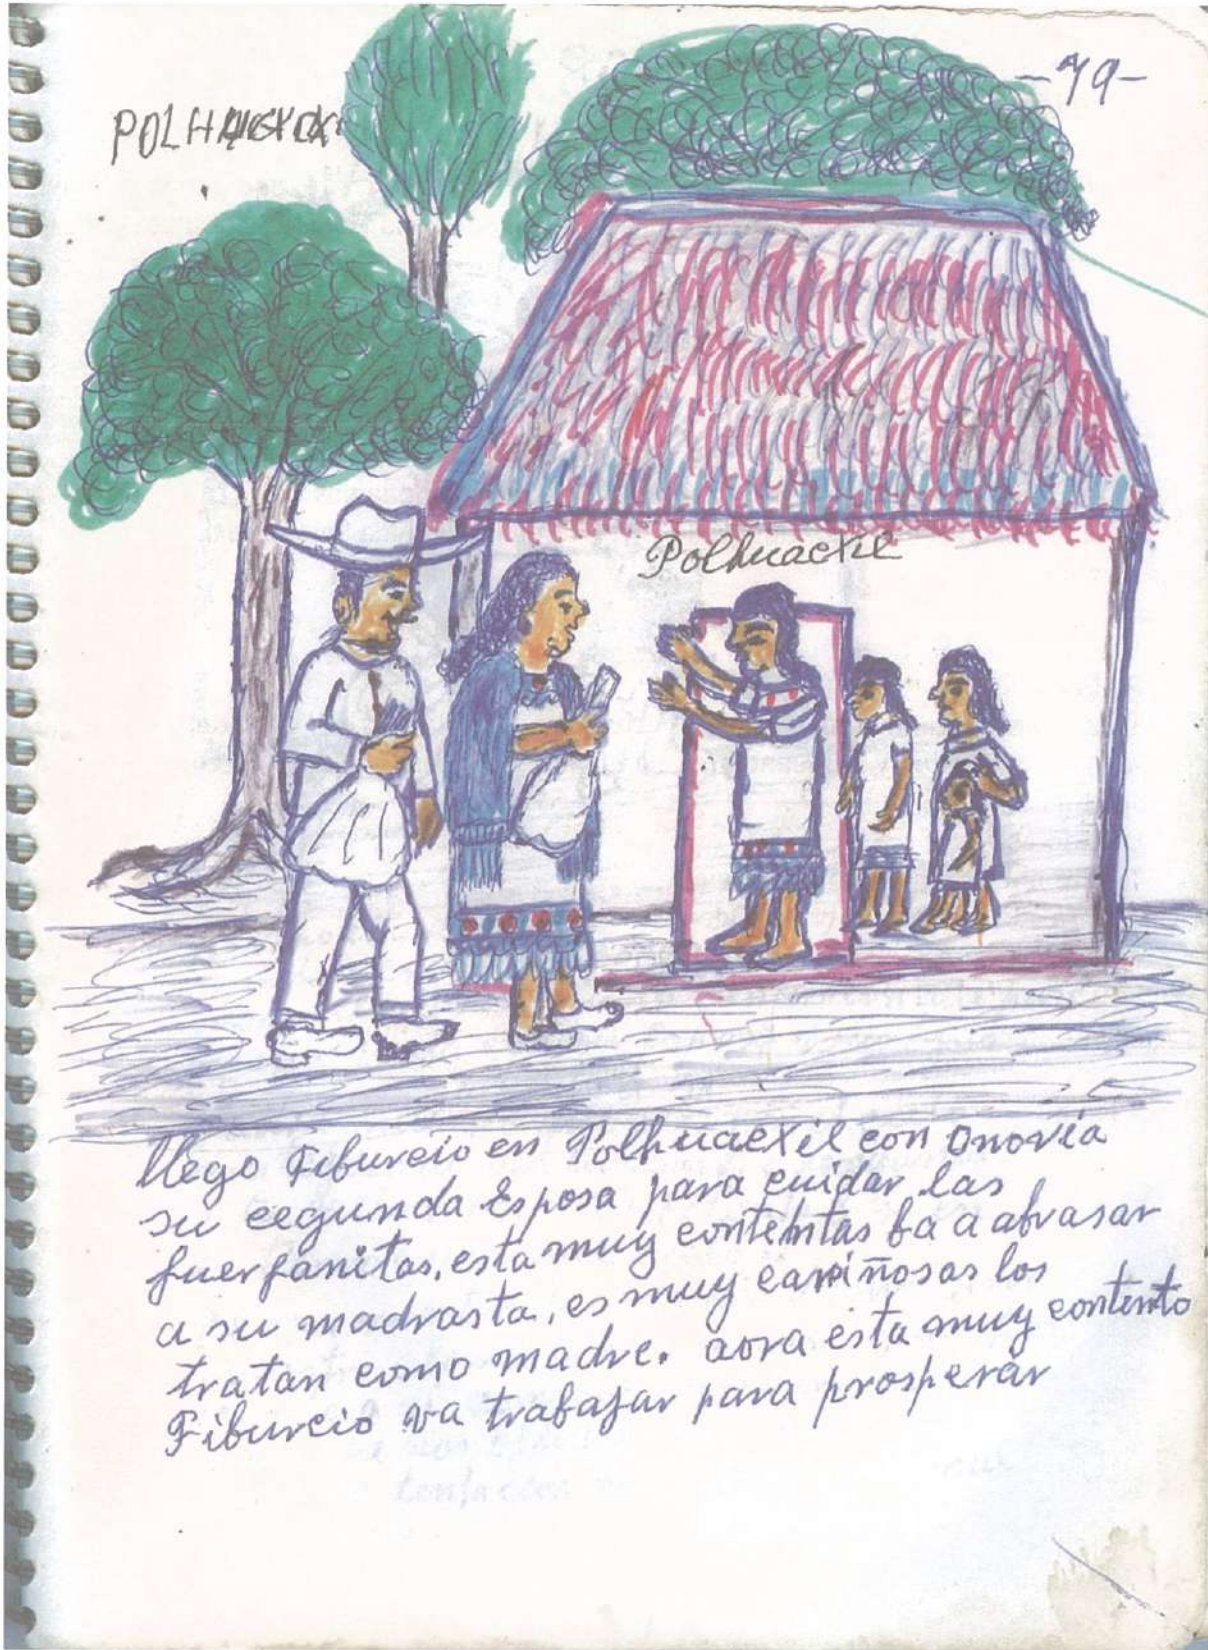 -79-
POLH
Polhuactil
llego Tiburcio en Polhuactil con Onoria
su cegunda Esposa para cuidar las
fuerfanitas, esta muy contentas ba a abrasar
a su madrasta, es muy cariñosas los
tratan como madre. aora esta muy contento
Tiburcio va trabajar para prosperar